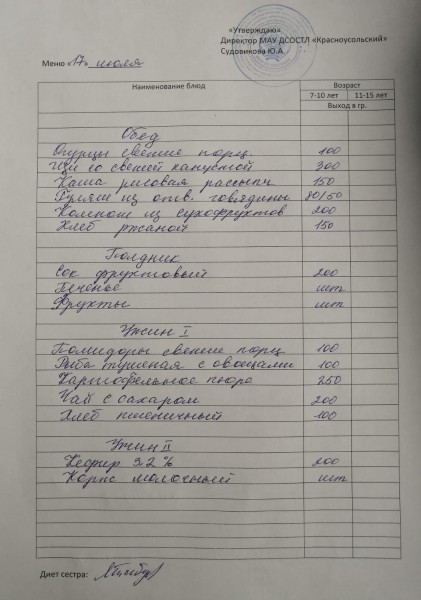 «Утверждаю»
Директор МАУ ДСОСТЛ «Красноусольский»
Судовикова Ю.А.
Меню «17» июля
Наименование блюд
Возраст
7-10 лет 11-15 лет
Выход в гр.
Обед
Огурцы свежие порц 100
Щи со свежей капустой 300
Каша рисовая рассыпч 150
Гуляш из отв. говядины 80/50
Компот из сухофруктов 200
Хлеб ржаной 150
Полдник
Сок фруктовый 200
Печенье шт
Фрукты шт
Ужин I
Помидоры свежие порц 100
Рыба тушеная с овощами 100
Картофельное пюре 250
Чай с сахаром 200
Хлеб пшеничный 100
Ужин II
Кефир 3.2% 200
Корж молочный шт
Диет сестра: